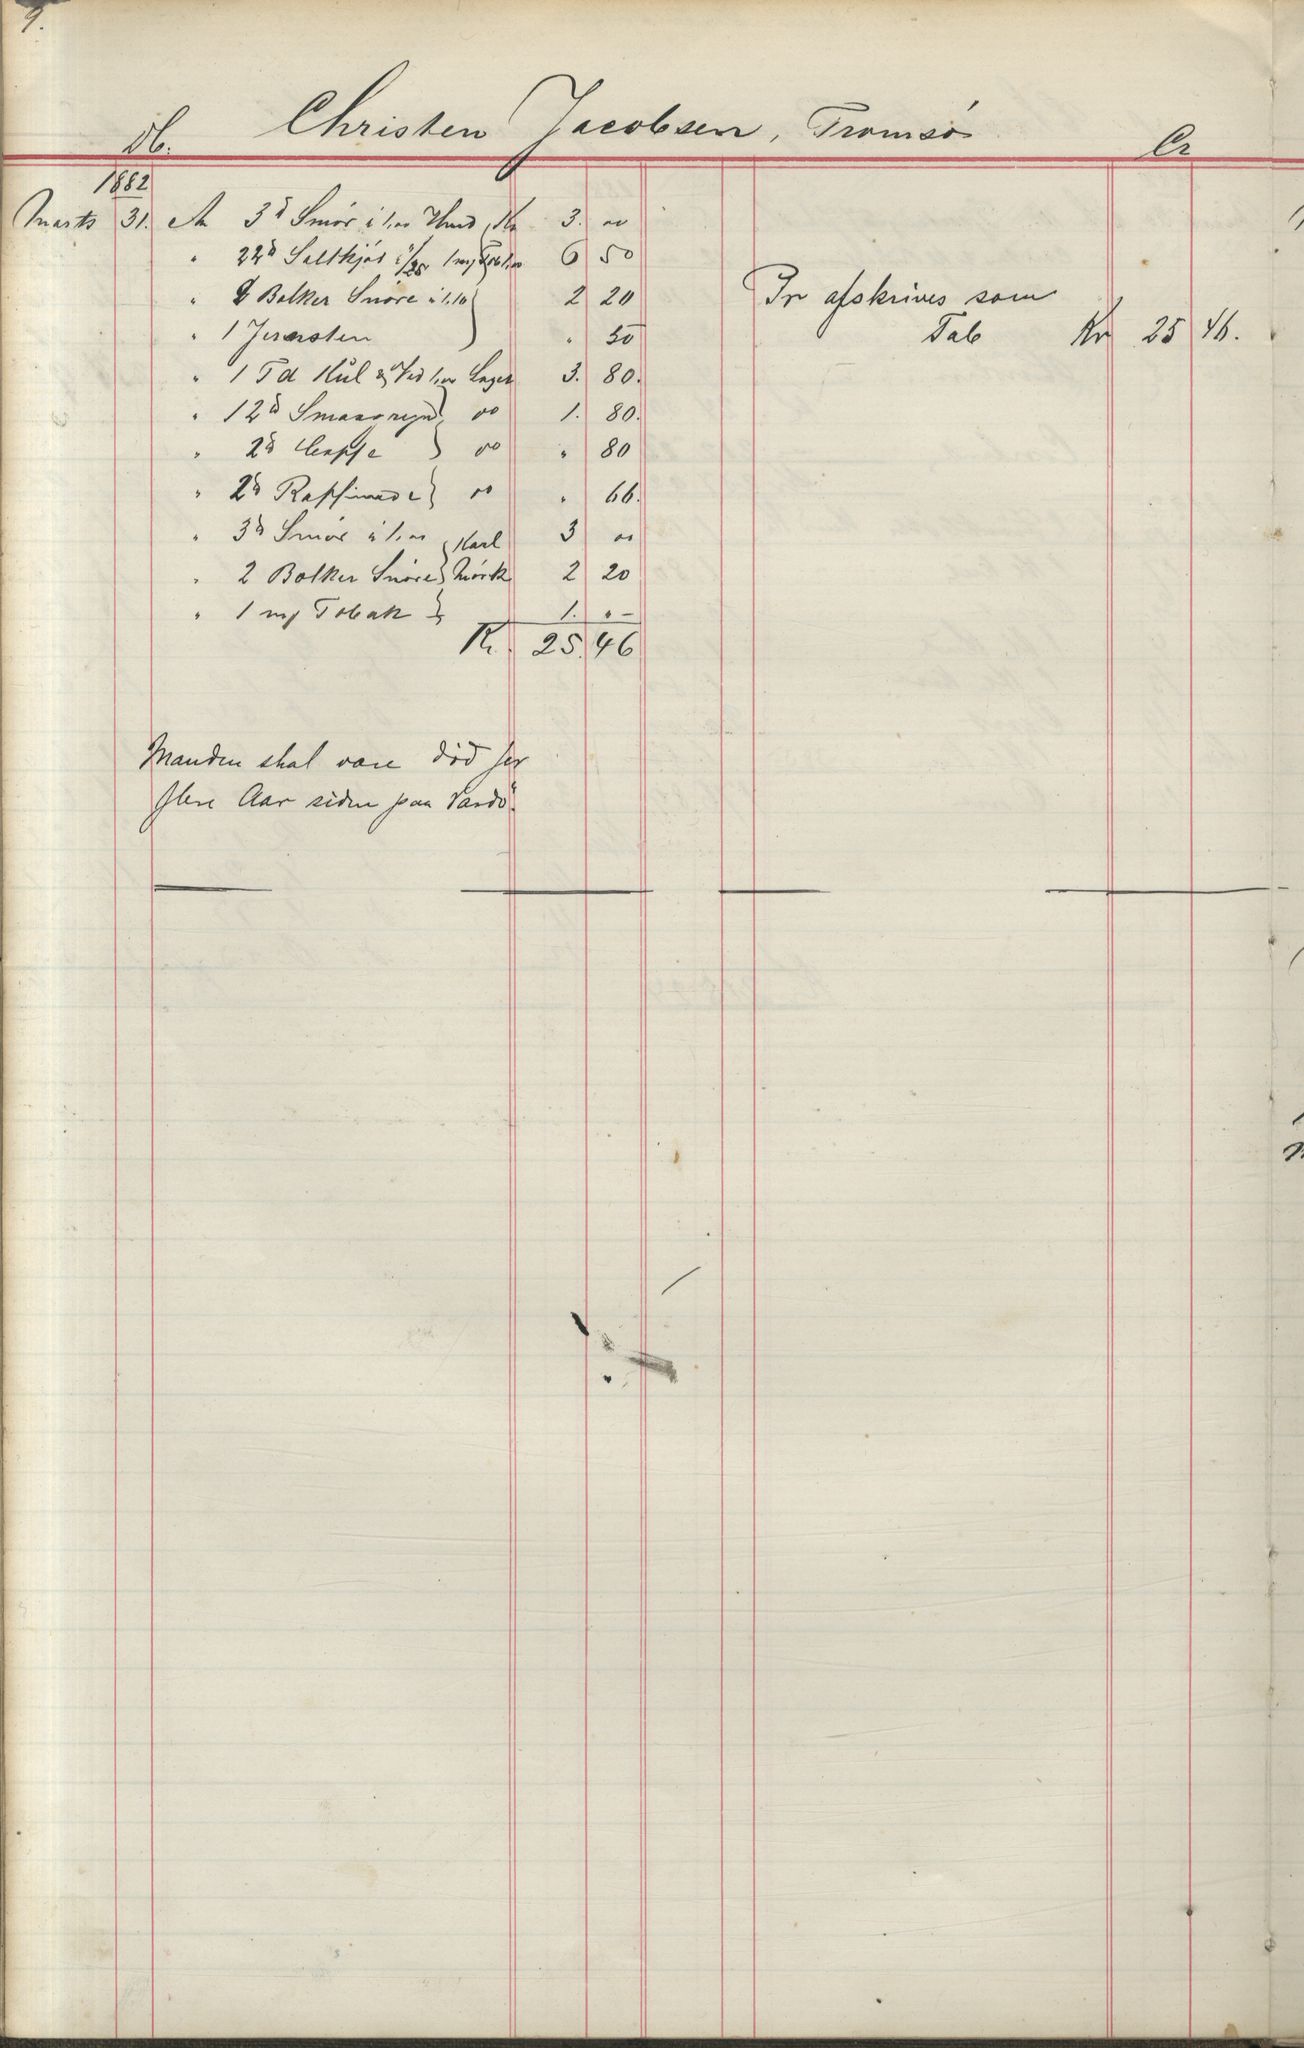 9.
Db. Christen Jacobsen, Tromsö Cr
1882
Marts 31. An 3 ℔ Smör à 1,00 Kr 3. 00
" 22 ℔ Saltkjöt 1 mrk Tob 1,00 6 50
" 2 Bolker Snöre à 1.10 2 20
" 1 Jernsten " 50
" 1 Td Kul & Ved 1,00 Lager 3. 80.
" 12 ℔ Smaagryn do 1. 80.
" 2 ℔ Caffe do " 80
" 2 ℔ Raffinade do " 66.
" 3 ℔ Smör à 1,00 Karl 3 00
" 2 Bolker Snöre Mörk 2 20
" 1 mrk Tobak 1. " –
Kr. 25. 46
Pr afskrives som
Tab Kr 25 46.
Manden skal være död for
flere Aar siden paa Vardö.